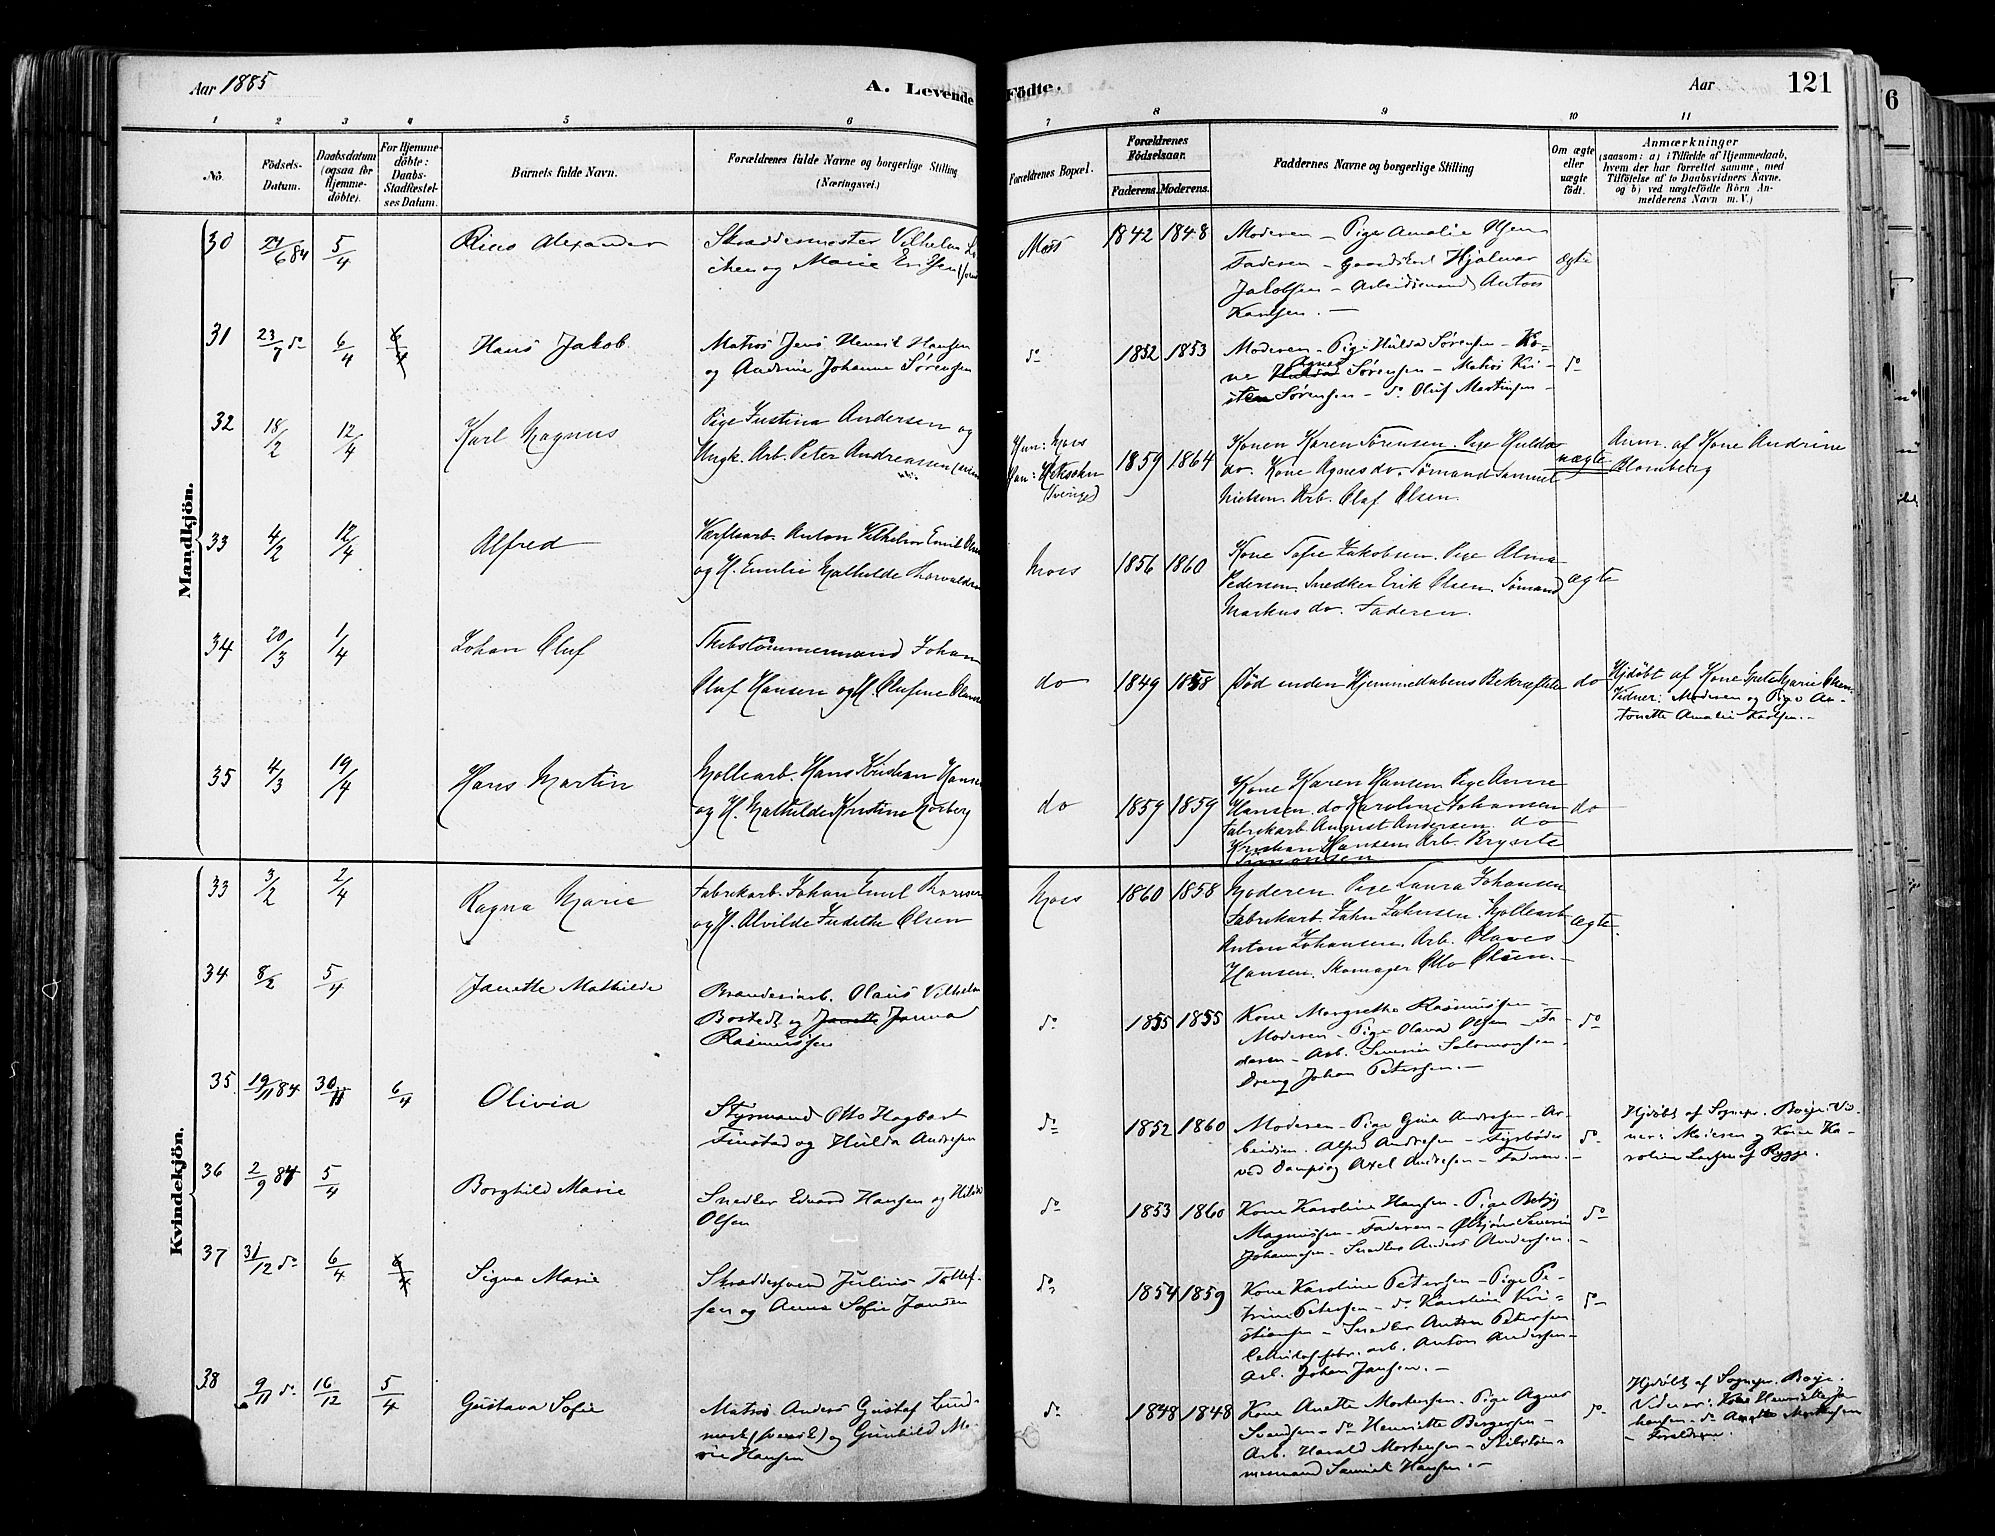 Aar 1885
A. Levende
Födte.
Aar
121
1 2 3 4 5 6 7 8 9 10 11
No.
Födsels-Datum.
Daabsdatum (ogsaa for Hjemmedöbte).
For Hjemmedöbte: Daabs-Stadfæstelses Datum.
Barnets fulde Navn.
Forældrenes fulde Navne og borgerlige Stilling
(Næringsvei.)
Forældrenes Bopæl.
Forældrenes Födselsaar.
Faderens. Moderens.
Faddernes Navne og borgerlige Stilling
Om ægte eller uægte födt.
Anmærkninger
(saasom: a) i Tilfælde af Hjemmedaab,
hvem der har forrettet samme, med
Tilföielse af to Daabsvidners Navne,
og b) ved uægtefödte Börn Anmelderens Navn m. V.)
Mandkjön.
30 24/6 84 5/4
Alexander
Skræddermester Vilhelm
og Marie
Moss
1842 1848
Moderen – Pige Amalie Olsen
Faderen – Gaardskarl Hjalmar
Jakobsen – Arbeidsmand Anton
Karlsen. –
ægte
31 23/7 do 6/4 6/4
Hans Jakob
Matros Jens Henrik Hansen
og Andrine Johanne Sørensen
do
1852 1853
Moderen – Pige Hulda Sørensen – Ko-
ne Hulda Agnes Sørensen – Matros Kri-
sten Sørensen – do Oluf Martinsen –
do
32 18/2 12/4
Karl Magnus
Pige Justina Andersen og
Ungk. Arb. Peter Andreassen
Hun: Moss
Han:
(Sverige)
1859 1864
Konen Karen Sørensen. Pige Hulda
do. Kone Agnes do. Sømand Samuel
Nielsen. Arb. Olaf Olsen.
uægte
Anm. af Kone Andrine
Blomberg
33 4/2 12/4
Alfred
Værftsarb. Anton Vilhelm Emil
og H. Emilie Mathilde Thorvaldsen
Moss
1856 1860
Kone Sofie Jakobsen. Pige Alma
Pedersen. Snedker Erik Olsen. Sømand
Markus do. Faderen.
ægte
34 20/3 1/4
Johan Oluf
Skibstømmermand Johan
Oluf Hansen og H. Olufine
do
1849 1858
Død inden Hjemmedaabens Bekræftelse
do
Hjdøbt af Kone Grete Marie Olsen.
Vidner: Moderen og Pige An-
tonette Amalie Karlsen. –
35 4/3 19/4
Hans Martin
Møllearb. Hans Kristian Hansen
og H. Mathilde Kristine Norberg
do
1859 1859
Kone Karen Hansen. Pige Anne
Hansen. do Karoline Johansen
Fabrikarb. August Andersen. do
Kristian Hansen. Arb. Brynte
Simonsen
do
Kvindekjön.
33 3/2 2/4
Ragna Marie
Fabrikarb. Johan Emil
og H. Alvilde Fredrikke Olsen
Moss
1860 1858
Moderen. Pige Laura Johansen
Fabrikarb. John Johnsen. Møllearb.
Anton Johansen. Arb. Olaves
Hansen. Skomager Otto Olsen. –
ægte.
34 8/2 5/4
Janette Mathilde
Brænderiarb. Olaus Vilhelm
Bosted og Janette Janna
Rasmussen
do
1855 1855
Kone Margrethe Rasmussen –
Moderen – Pige Olava Olsen – Fa-
deren – Arb. Severin Salomonsen –
Dreng Johan Petersen. –
do
35 19/11 84 30/11 6/4
Olivia
Styrmand Otto Hagbart
Finstad og Hulda Andresen
do
1852 1860
Moderen – Pige Gina Andresen – Ar-
beidsm. Alfred Andresen – Fyrbøder
ved Dampsg Axel Andresen – Faderen. –
do
Hjdøbt af Sognepr. Boije. Vid-
ner: Moderen og Kone Ka-
roline Larsen af Rygge.
36 2/9 84 5/4
Borghild Marie
Snedker Edvard Hansen og Hilda
Olsen
do
1853 1860
Kone Karoline Hansen – Pige Betzy
Magnussen – Faderen – Severin
Johannesen – Snedker Anders Andersen. –
do
37 31/12 do 6/4 6/4
Signa Marie
Skræddersvend Julius Tollef-
sen og Anne Sofie Jansen
do
1854 1859
Kone Karoline Petersen – Pige Pe-
trine Petersen – do Karoline Kri-
stiansen – Snedker Anton Petersen
arb. Anton Andersen –
Arb. Johan Jansen. –
do
38 9/11 do 16/12 5/4
Gustava Sofie
Matros Anders Gustaf Lund-
mark (svensk) og Gunhild Ma-
rie Hansen
do
1848 1848
Kone Anette Mortensen. Pige Agnes
Svendsen – do Henriette Bergersen –
Arb. Harald Mortensen – Skibstøm-
mermand Samuel Hansen. –
do
Hjdøbt af Sognepr. Boije.
Vidner: Kone Henriette Jo-
hansen – do Anette Mortensen
– Forældrene.